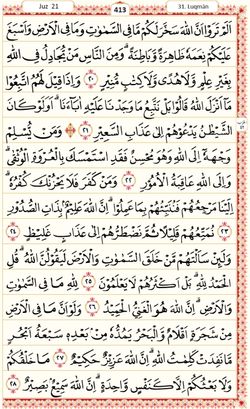 Juz 21 413 31. Luqmân
اَلَمْ تَرَوْا اَنَّ اللّٰهَ سَخَّرَ لَكُمْ مَّا فِي السَّمٰوٰتِ وَمَا فِي الْاَرْضِ وَاَسْبَغَ
عَلَيْكُمْ نِعَمَهٗ ظَاهِرَةً وَّبَاطِنَةً ۗ وَمِنَ النَّاسِ مَنْ يُّجَادِلُ فِي اللّٰهِ
بِغَيْرِ عِلْمٍ وَّلَا هُدًى وَّلَا كِتٰبٍ مُّنِيْرٍ ٢٠ وَاِذَا قِيْلَ لَهُمُ اتَّبِعُوْا
مَآ اَنْزَلَ اللّٰهُ قَالُوْا بَلْ نَتَّبِعُ مَا وَجَدْنَا عَلَيْهِ اٰبَاۤءَنَا ۗ اَوَلَوْ كَانَ
الشَّيْطٰنُ يَدْعُوْهُمْ اِلٰى عَذَابِ السَّعِيْرِ ٢١ وَمَنْ يُّسْلِمْ
وَجْهَهٗٓ اِلَى اللّٰهِ وَهُوَ مُحْسِنٌ فَقَدِ اسْتَمْسَكَ بِالْعُرْوَةِ الْوُثْقٰى ۗ
وَاِلَى اللّٰهِ عَاقِبَةُ الْاُمُوْرِ ٢٢ وَمَنْ كَفَرَ فَلَا يَحْزُنْكَ كُفْرُهٗ ۗ
اِلَيْنَا مَرْجِعُهُمْ فَنُنَبِّئُهُمْ بِمَا عَمِلُوْا ۗ اِنَّ اللّٰهَ عَلِيْمٌۢ بِذَاتِ الصُّدُوْرِ
٢٣ نُمَتِّعُهُمْ قَلِيْلًا ثُمَّ نَضْطَرُّهُمْ اِلٰى عَذَابٍ غَلِيْظٍ ٢٤
وَلَىِٕنْ سَاَلْتَهُمْ مَّنْ خَلَقَ السَّمٰوٰتِ وَالْاَرْضَ لَيَقُوْلُنَّ اللّٰهُ ۗ قُلِ
الْحَمْدُ لِلّٰهِ ۗ بَلْ اَكْثَرُهُمْ لَا يَعْلَمُوْنَ ٢٥ لِلّٰهِ مَا فِي السَّمٰوٰتِ
وَالْاَرْضِ ۗ اِنَّ اللّٰهَ هُوَ الْغَنِيُّ الْحَمِيْدُ ٢٦ وَلَوْ اَنَّ مَا فِي الْاَرْضِ
مِنْ شَجَرَةٍ اَقْلَامٌ وَّالْبَحْرُ يَمُدُّهٗ مِنْۢ بَعْدِهٖ سَبْعَةُ اَبْحُرٍ
مَّا نَفِدَتْ كَلِمٰتُ اللّٰهِ ۗ اِنَّ اللّٰهَ عَزِيْزٌ حَكِيْمٌ ٢٧ مَا خَلْقُكُمْ
وَلَا بَعْثُكُمْ اِلَّا كَنَفْسٍ وَّاحِدَةٍ ۗ اِنَّ اللّٰهَ سَمِيْعٌۢ بَصِيْرٌ ٢٨